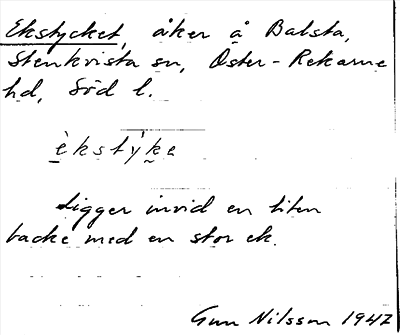 Ekstycket, åker å Balsta,
Stenkvista sn, Öster-Rekarne
hd, Söd l.
èkstỳke
Ligger invid en liten
backe med en stor ek.
Gun Nilsson 1947